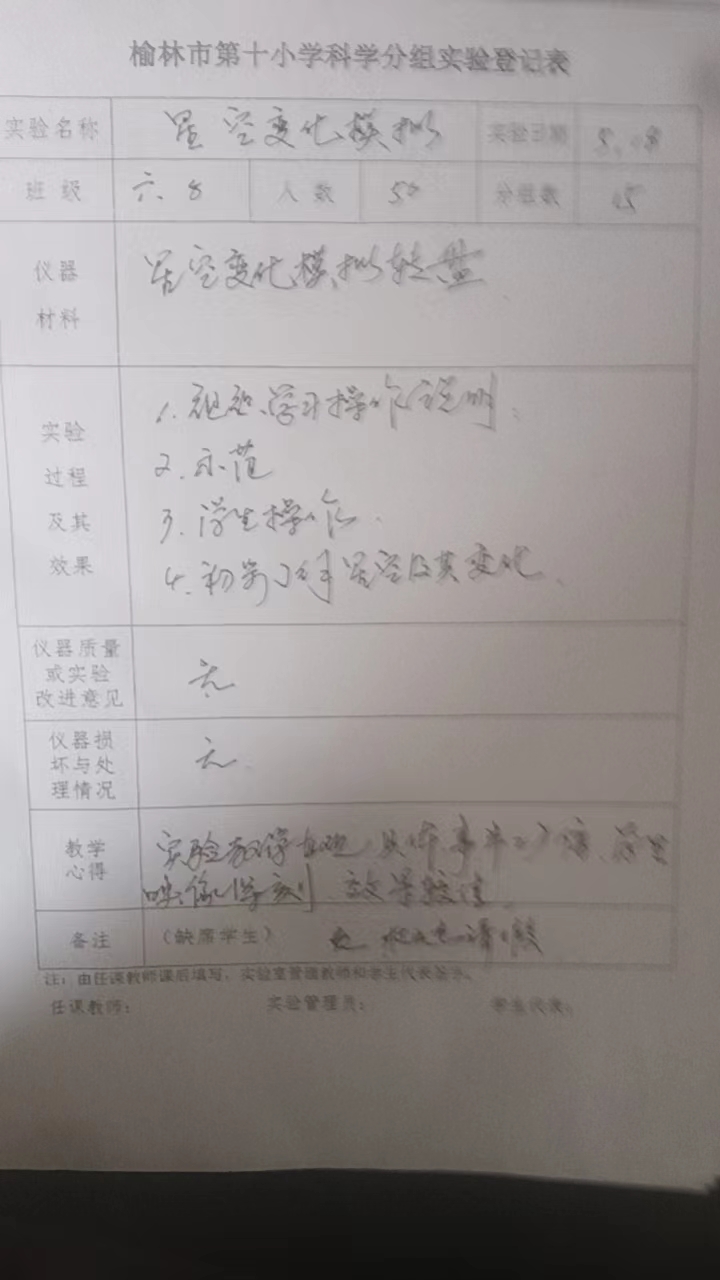 榆林市第十小学科学分组实验登记表
实验名称 星空变化模拟 实验日期
班级 六.8 人数 50 分组数 15
仪器材料 星空变化模拟转盘
实验过程及其效果
1. 学习操作说明
2. 示范
3. 学生操作
4. 初步了解星空及其变化
仪器质量或实验改进意见 无
仪器损坏与处理情况 无
教学心得 实验 直观 具体 学生
印象深刻 效果较佳
备注 (缺席学生)
注：由任课教师课后填写，实验室管理教师和学生代表签字。
任课教师： 实验管理员： 学生代表：